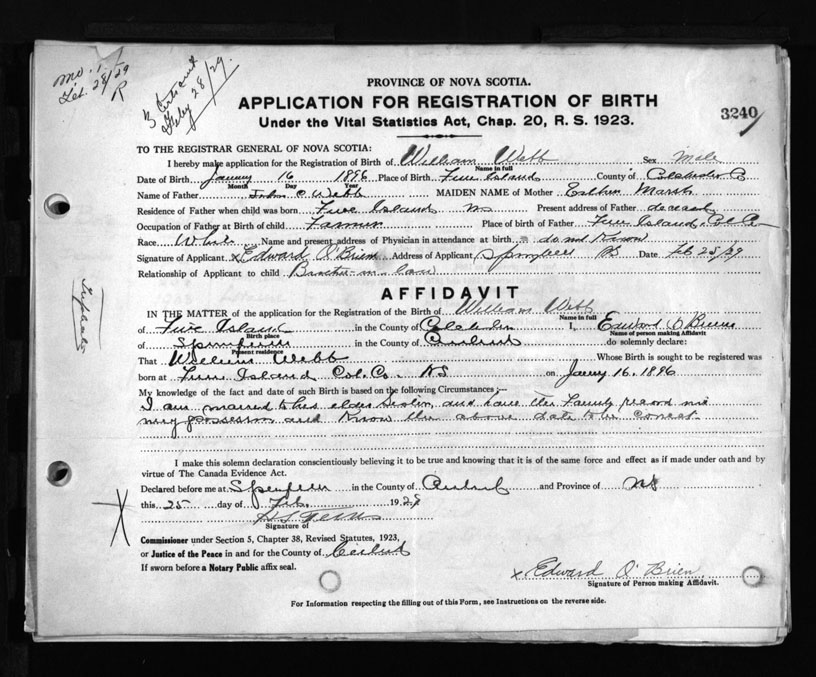 Feb. 28/29
R
3
Feby 28/29.
PROVINCE OF NOVA SCOTIA.
APPLICATION FOR REGISTRATION OF BIRTH
3240
Under the Vital Statistics Act, Chap. 20, R. S. 1923.
TO THE REGISTRAR GENERAL OF NOVA SCOTIA:
I hereby make application for the Registration of Birth of William Webb Sex Male
Name in full
Date of Birth January 16 1896 Place of Birth Five Island County of Colchester Co
Month Day Year
Name of Father John O Webb MAIDEN NAME of Mother Esther Marsh
Residence of Father when child was born Five Island NS Present address of Father deceased
Occupation of Father at Birth of child Farmer Place of birth of Father Five Island, Col Co
Race White Name and present address of Physician in attendance at birth do not Know
Signature of Applicant x Edward O'Brien Address of Applicant Springhill NS Date Feb 25/29
Relationship of Applicant to child Brother-in-law
AFFIDAVIT
IN THE MATTER of the application for the Registration of the Birth of William Webb
Name in full
of Five Island in the County of Colchester I, Edward O'Brien
Birth place Name of person making Affidavit
of Springhill in the County of Cumberland do solemnly declare:
Present residence
That William Webb Whose Birth is sought to be registered was
born at Five Island Col. Co. NS on Janry 16, 1896
My knowledge of the fact and date of such Birth is based on the following Circumstances;—
I am married to his elder Sister, and have the Family record in
my possession and Know the above date to be correct
I make this solemn declaration conscientiously believing it to be true and knowing that it is of the same force and effect as if made under oath and by
virtue of The Canada Evidence Act.
Declared before me at Springhill in the County of Cumberland and Province of NS
this 25 day of Feb. 1929
Signature of
Commissioner under Section 5, Chapter 38, Revised Statutes, 1923,
or Justice of the Peace in and for the County of Cumberland
If sworn before a Notary Public affix seal.
x Edward O'Brien
Signature of Person making Affidavit.
For Information respecting the filling out of this Form, see Instructions on the reverse side.